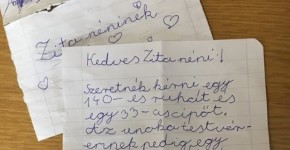 Zita néninek
Kedves Zita néni!
Szeretnék kérni egy
140-es ruhát és
egy 33-as cipőt.
Az unoka testvér-
emnek pedig egy